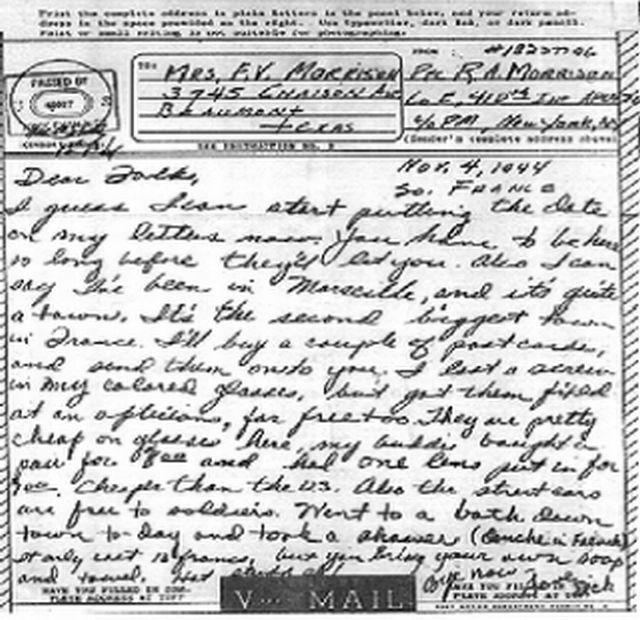 Print the complete address in plain letters in the panel below, and your return ad-
dress in the space provided on the right. Use typewriter, dark ink, or dark pencil.
Faint or small writing is not suitable for photographing.
FROM
TO:
PASSED BY
MRS. F.V. MORRISON
PFC R.A. MORRISON
3745 CHAISON AVE
Co E, 410th INF
BEAUMONT
TEXAS
c/o PM, New York, N.Y.
(Sender's complete address above)
SEE INSTRUCTION NO. 2
Nov. 4, 1944
So. FRANCE
Dear Folks,
I guess I can start putting the date
on my letters now. You have to be here
so long before they'll let you. Also I can
say I've been in Marseille, and it's quite
a town. It's the second biggest town
in France. I'll buy a couple of postcards,
and send them onto you. I lost a screw
in my colored glasses, but got them fixed
at an opticians, for free too. They are pretty
cheap on glasses here, my buddie bought a
pair for and had one lens put in for
Cheaper than the U.S. Also the street cars
are free to soldiers. Went to a bath down
town to-day and took a shower (Douche in French)
it only cost 12 francs, but you bring your own soap
and towel.
Bye now
Love
Dick
HAVE YOU FILLED IN COM-
PLETE ADDRESS AT TOP?
V--- MAIL
HAVE YOU FILLED IN COM-
PLETE ADDRESS AT TOP?